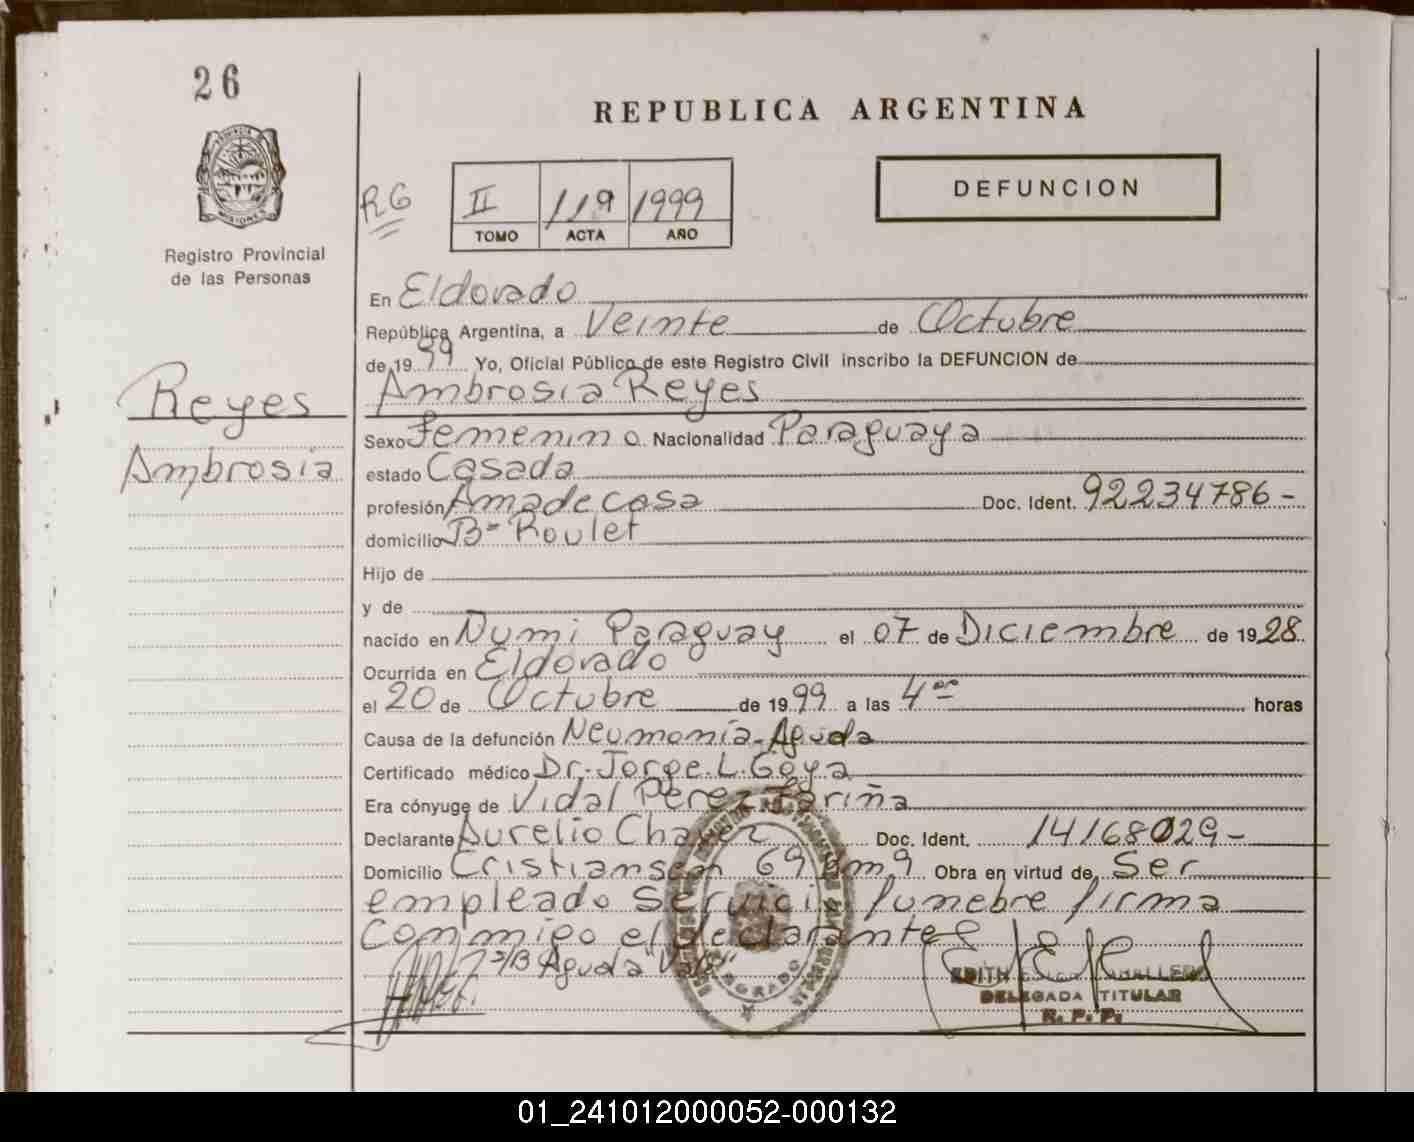 26
REPUBLICA ARGENTINA
PROVINCIA DE
MISIONES
Registro Provincial
de las Personas
RG
II 119 1999
TOMO ACTA AÑO
DEFUNCION
En Eldorado
República Argentina, a Veinte de Octubre
de 19 99 Yo, Oficial Público de este Registro Civil inscribo la DEFUNCION de
Ambrosia Reyes
Reyes
Ambrosia
Sexo Femenino Nacionalidad Paraguaya
estado Casada
profesión Ama de casa Doc. Ident. 92234786-
domicilio Bº Roulet
Hijo de
y de
nacido en Ñumi Paraguay el 07 de Diciembre de 19 28
Ocurrida en Eldorado
el 20 de Octubre de 19 99 a las 4 horas
Causa de la defunción Neumonía-Aguda
Certificado médico Dr. Jorge.L.Goya
Era cónyuge de Vidal Perez Fariña
Declarante Aurelio Chavez Doc. Ident. 14168029-
Domicilio Cristiansen 69 km9 Obra en virtud de Ser
empleado Servicio funebre firma
Commigo el declarante
s/B Aguda "Vale"
EDITH
DELEGADA TITULAR
R. P. P.
01_241012000052-000132